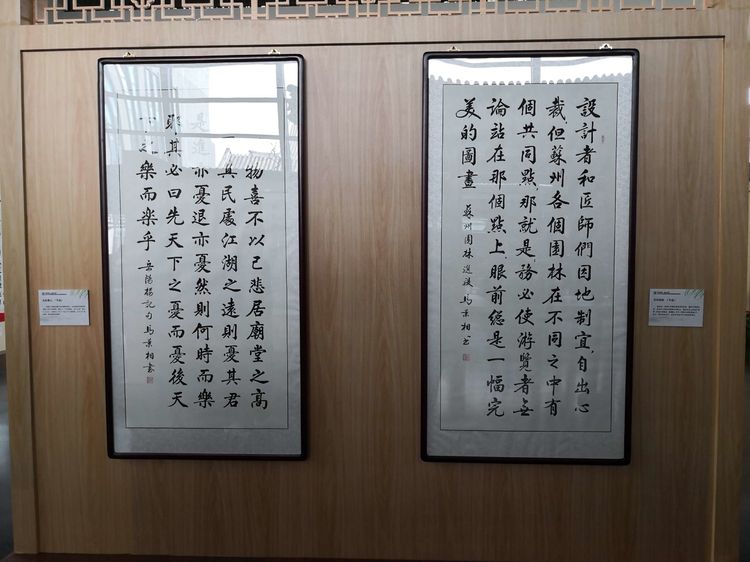 設計者和匠師們因地制宜,自出心
裁,但蘇州各個園林在不同之中有
個共同點,那就是,務必使游覽者無
論站在那個點上,眼前總是一幅完
美的圖畫 蘇州園林選段 馬景相书
物喜不以己悲居廟堂之高
其民處江湖之遠則憂其君
是進亦憂退亦憂然則何時而樂
耶其必曰先天下之憂而憂後天
樂而樂乎 岳陽樓記句 馬景相書